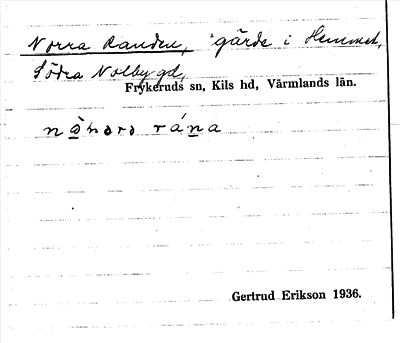 Norra Randen, gärde i Hemmet,
Södra Nolbygd,
Frykeruds sn, Kils hd, Värmlands län.
Gertrud Erikson 1936.